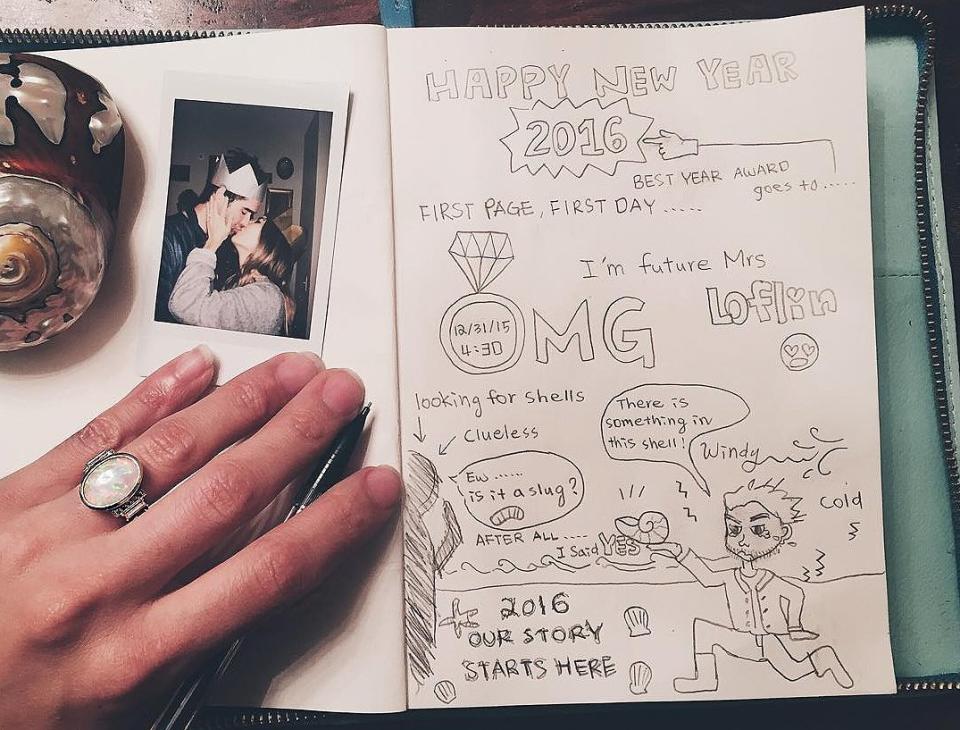 HAPPY NEW YEAR
2016
BEST YEAR AWARD
goes to.....
FIRST PAGE, FIRST DAY .....
I'm future Mrs
Loflin
12/31/15
4:30
OMG
looking for shells
Clueless
There is
something in
this shell!
Windy
Ew.....
is it a slug?
Cold
AFTER ALL ....
I Said YES
2016
OUR STORY
STARTS HERE